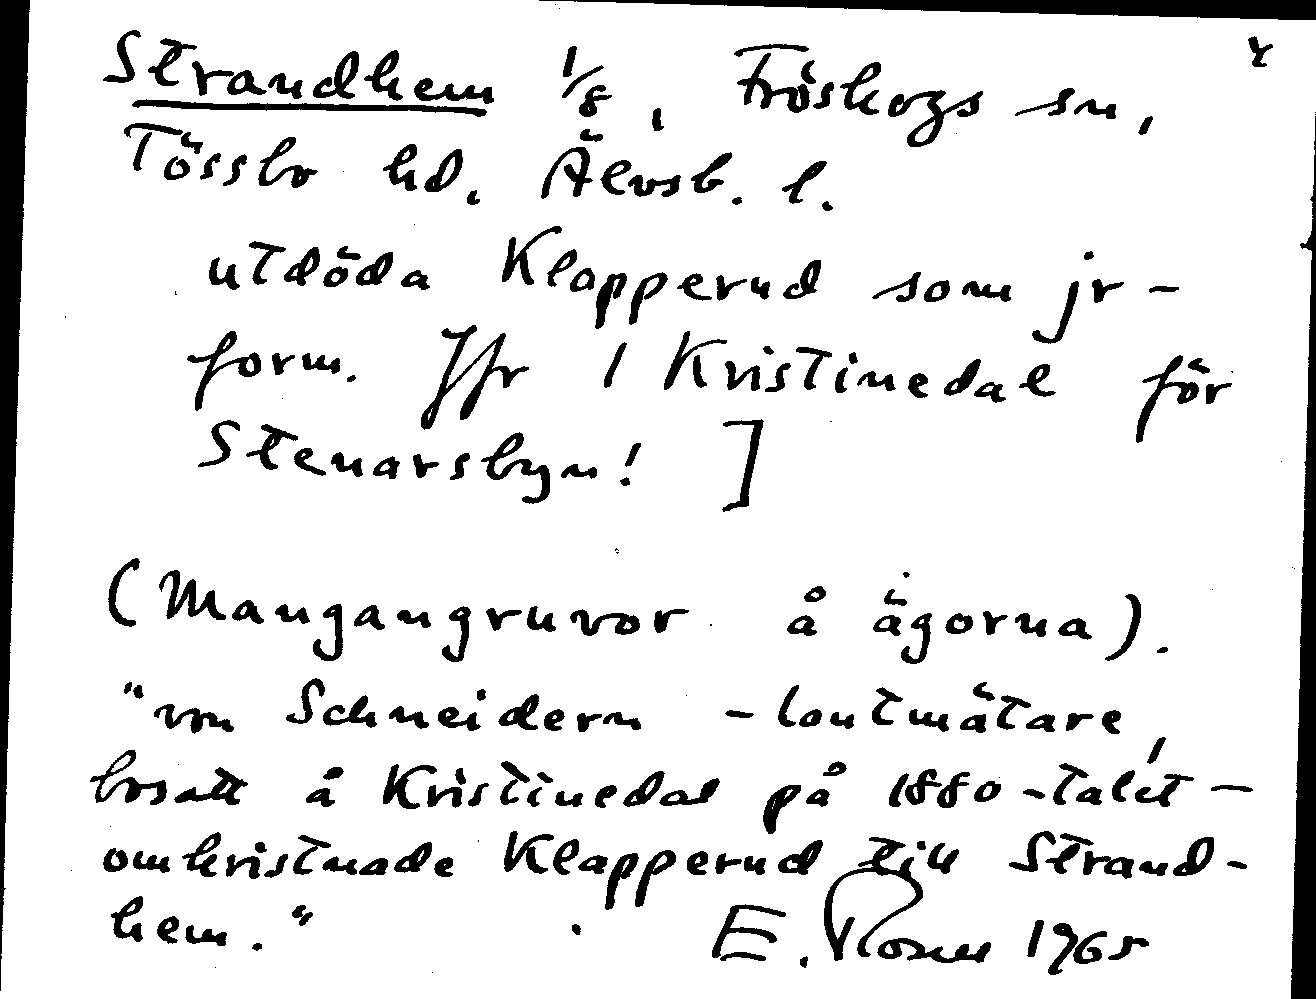 4
Strandhem 1/8, Fröskogs sn,
Tössbo hd. Älvsb. l.
utdöda Klapperud som jr-
form. Jfr 1 Kristinedal för
Stenarsbyn! ]
(Mangangruvor å ägorna).
"von Schneidern - lantmätare,
bosatt å Kristinedal på 1880-talet -
omkristnade Klapperud till Strand-
hem." E. Rosell 1965